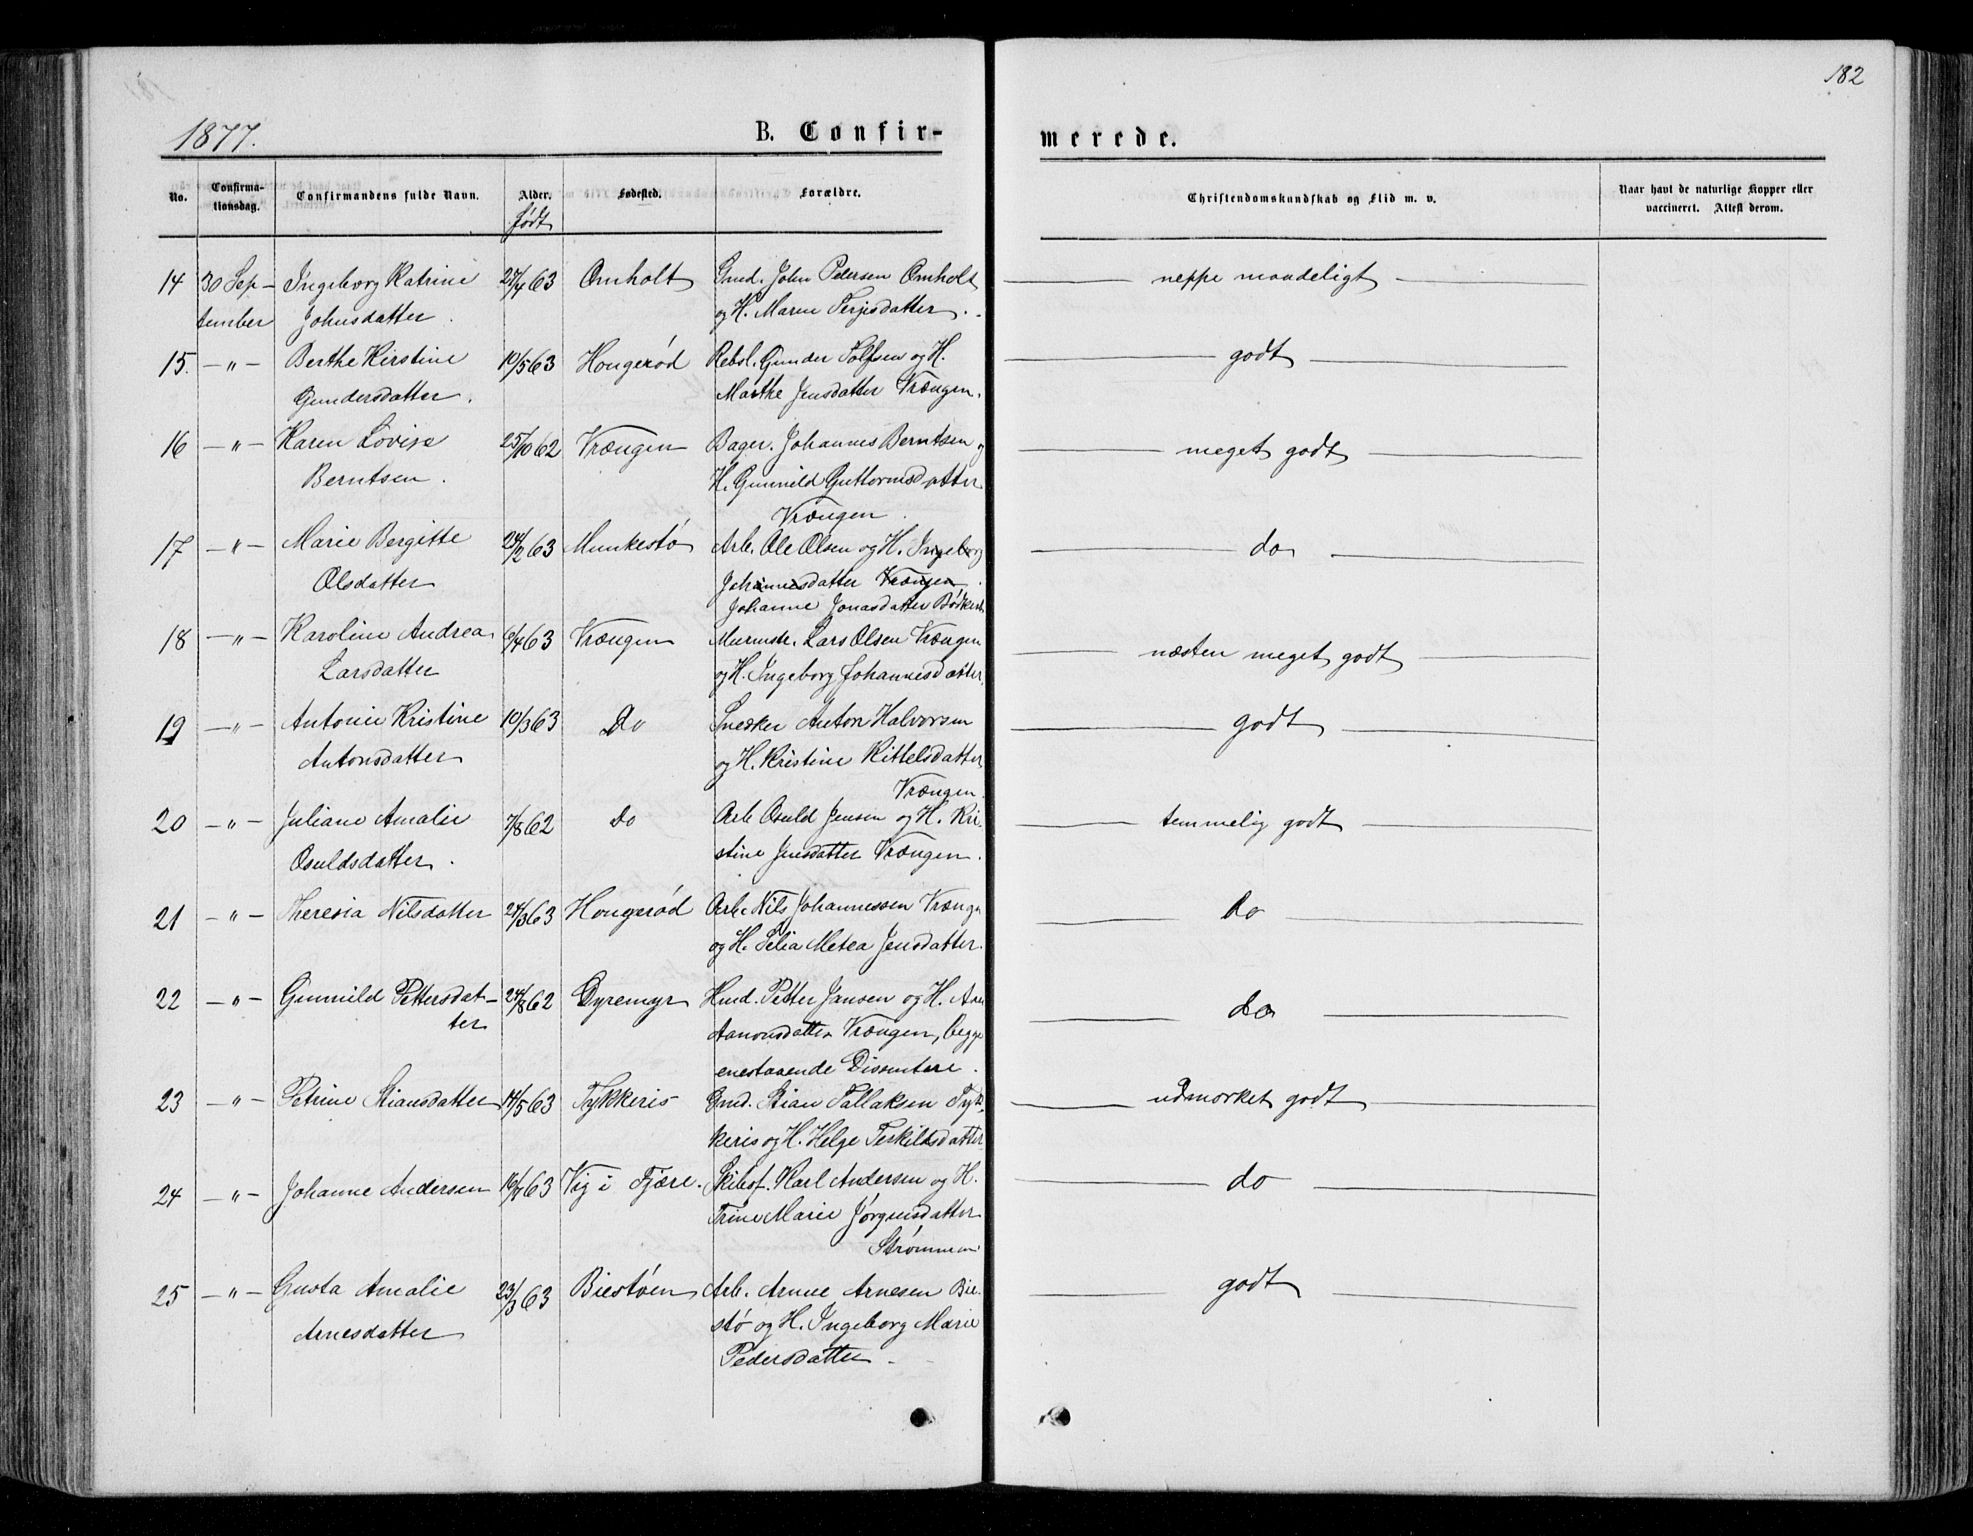 182
1877.
B. Confir-
merede.
No.
Confirma-
tionsdag.
Confirmandens fulde Navn.
Alder.
født
Fødested.
Forældre.
Christendomskundskab og Flid m. v.
Naar havt de naturlige Kopper eller
vaccineret. Attest derom.
14 30 Sep- Ingeborg Katrine 27/4 63 Omholt Gmd. John Pedersen Omholt neppe maadeligt
tember Johnsdatter. og H. Maren Terjesdatter.
15. -"- Berthe Kirstine 10/5 63 Hougerød Rebsl. Gunder Solfsen og H. godt
Gundersdatter. Marthe Jensdatter Vrængen.
16 -"- Karen Lovise 25/10 62 Vrængen Bager. Johannes Berntsen og meget godt
Berntsen. H. Gunnild Guttormsdatter
Vrængen.
17 -"- Marie Bergitte 24/2 63 Munkestø Arb. Ole Olsen og H. Ingeborg do
Olsdatter Johannesdatter Vrængen.
Johanne Jonasdatter
18 -"- Karoline Andrea 6/4 63 Vrængen Murmstr. Lars Olsen Vrængen næsten meget godt
Larsdatter og H. Ingeborg Johannesdatter.
19 -"- Antonie Kristine 10/3 63 Do Snedker Anton Halvorsen godt
Antonsdatter og H. Kristine Kittelsdatter
Vrængen.
20 -"- Juliane Amalie 7/8 62 Do Arb. Osuld Jensen og H. Kri- temmelig godt
Osuldsdatter. stine Jensdatter Vrængen.
21 -"- Theresia Nilsdatter 24/3 63 Hougerød Arb. Nils Johannessen Vrænge do
og H. Silia Metea Jensdatter.
22 -"- Gunnild Pettersdat- 24/8 62 Dyremyr Hmd. Petter Jansen og H. do
ter Aanonsdatter Vrængen, begge
enestaaende Dissentere.
23 -"- Petrine Stiansdatter 14/5 63 Tykkeris Gmd. Stian Tallaksen Tyk- udmærket godt
keris og H. Helge Terkildsdatter
24 -"- Johanne Andersen 63 Vig i Fjære. Skibsf. Karl Andersen og H. do
Trine Marie Jørgensdatter
Strømmen.
25 -"- Gusta Amalie 23/3 63 Biestøen Arb. Arne Arnesen Bie- godt
Arnesdatter stø og H. Ingeborg Marie
Pedersdatter